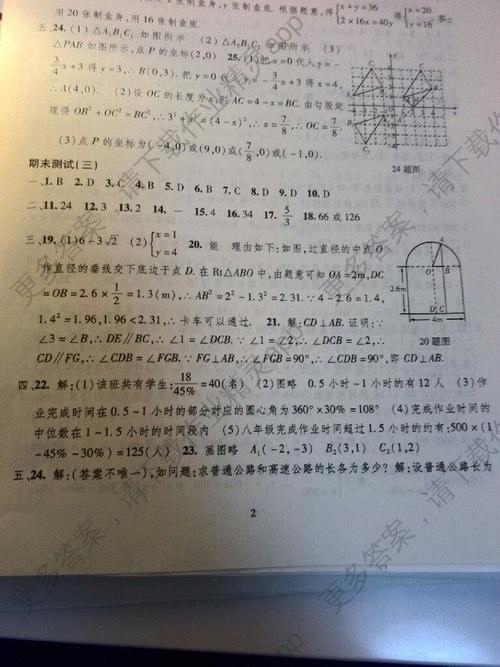 用 20 张制盒身,用 16 张制盒底.
x+y=36
2×16x=40y
得
x=20
y=16
五、24. (1)△A₁B₁C₁ 如图所示 (2)△A₂B₂C₂ 如图所示 (3)
△PAB 如图所示,点 P 的坐标(2,0) 25. (1)把 x=0 代入 y=-
3/4 x+3 得 y=3,∴B(0,3). 把 y=0 代入 y=-3/4 x+3 得 x=4,
∴A(4,0). (2)设 OC 的长度为 x,则 AC=4-x=BC. 由勾股定
理得 OB²+OC²=BC²,∴3²+x²=(4-x)²,∴x=7/8,∴OC=7/8.
(3)点 P 的坐标为(-4,0)或(9,0)或(7/8,0)或(-1,0).
24 题图
期末测试(三)
一、1. B 2. D 3. C 4. B 5. D 6. B 7. C 8. D 9. D 10. D
二、11. 24 12. 3 13. 2 14. 一 15. 4 16. 34 17. 5/3 18. 66 或 126
三、19. (1)6-3√2 (2){x=1 y=4 20. 能 理由如下:如图,过直径的中点 O
作直径的垂线交下底边于点 D. 在 Rt△ABO 中,由题意可知 OA=2m,DC
=OB=2.6×1/2=1.3(m),∴AB²=2²-1.3²=2.31. ∵4-2.6=1.4,
1.4²=1.96,1.96<2.31,∴卡车可以通过. 21. 解:CD⊥AB. 证明:∵
∠3=∠B,∴DE∥BC,∴∠1=∠DCB. ∵∠1=∠2,∴∠DCB=∠2,∴
CD∥FG,∴∠CDB=∠FGB. ∵FG⊥AB,∴∠FGB=90°,∴∠CDB=90°,即 CD⊥AB.
2.6m
4m
20 题图
四、22. 解:(1)该班共有学生:18/45%=40(名) (2)图略 0.5 小时~1 小时的有 12 人 (3)作
业完成时间在 0.5~1 小时的部分对应的圆心角为 360°×30%=108° (4)完成作业时间的
中位数在 1~1.5 小时的时间段内 (5)八年级完成作业时间超过 1.5 小时的约有:500×(1
-45%-30%)=125(人) 23. 画图略 A₁(-2,-3) B₂(3,1) C₂(1,2)
五、24. 解:(答案不唯一),如问题:求普通公路和高速公路的长各为多少? 解:设普通公路长为
2
更多答案,请下载作业精灵app